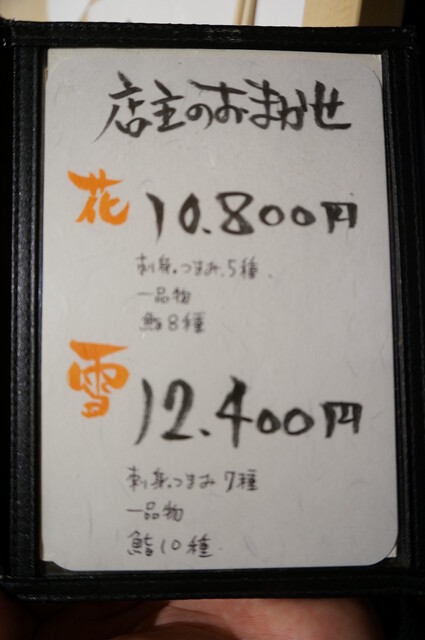 店主のおまかせ
花 10.800円
刺身.つまみ.5種.
一品物
鮨8種
雪 12.400円
刺身.つまみ7種
一品物
鮨10種.